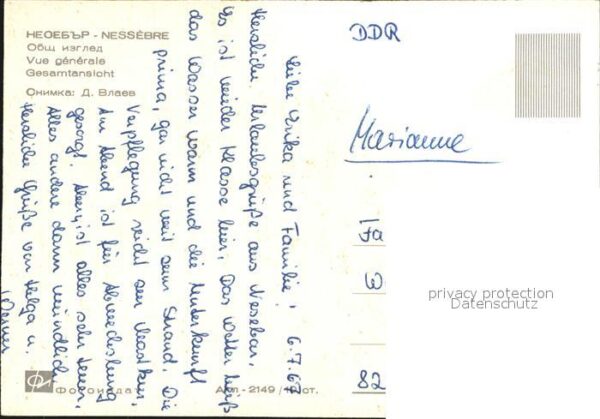 НЕСЕБЪР - NESSÈBRE
Общ изглед
Vue générale
Gesamtansicht
Снимка: Д. Влаев
DDR
Marianne
Fa
82
privacy protection
Datenschutz
Liebe Erika und Familie! 6.7.67
Herzliche Urlaubsgrüße aus Nesebar.
Es ist wieder Klasse hier. Das Wetter heiß
das Wasser warm und die Unterkunft
prima, gar nicht weit zum Strand. Die
Verpflegung reicht zum
Am Abend ist für Abwechslung
gesorgt. ist alles sehr teuer.
Alles andere dann mündlich.
Herzliche Grüße von Helga u.
Werner
Фотоиздат
2149